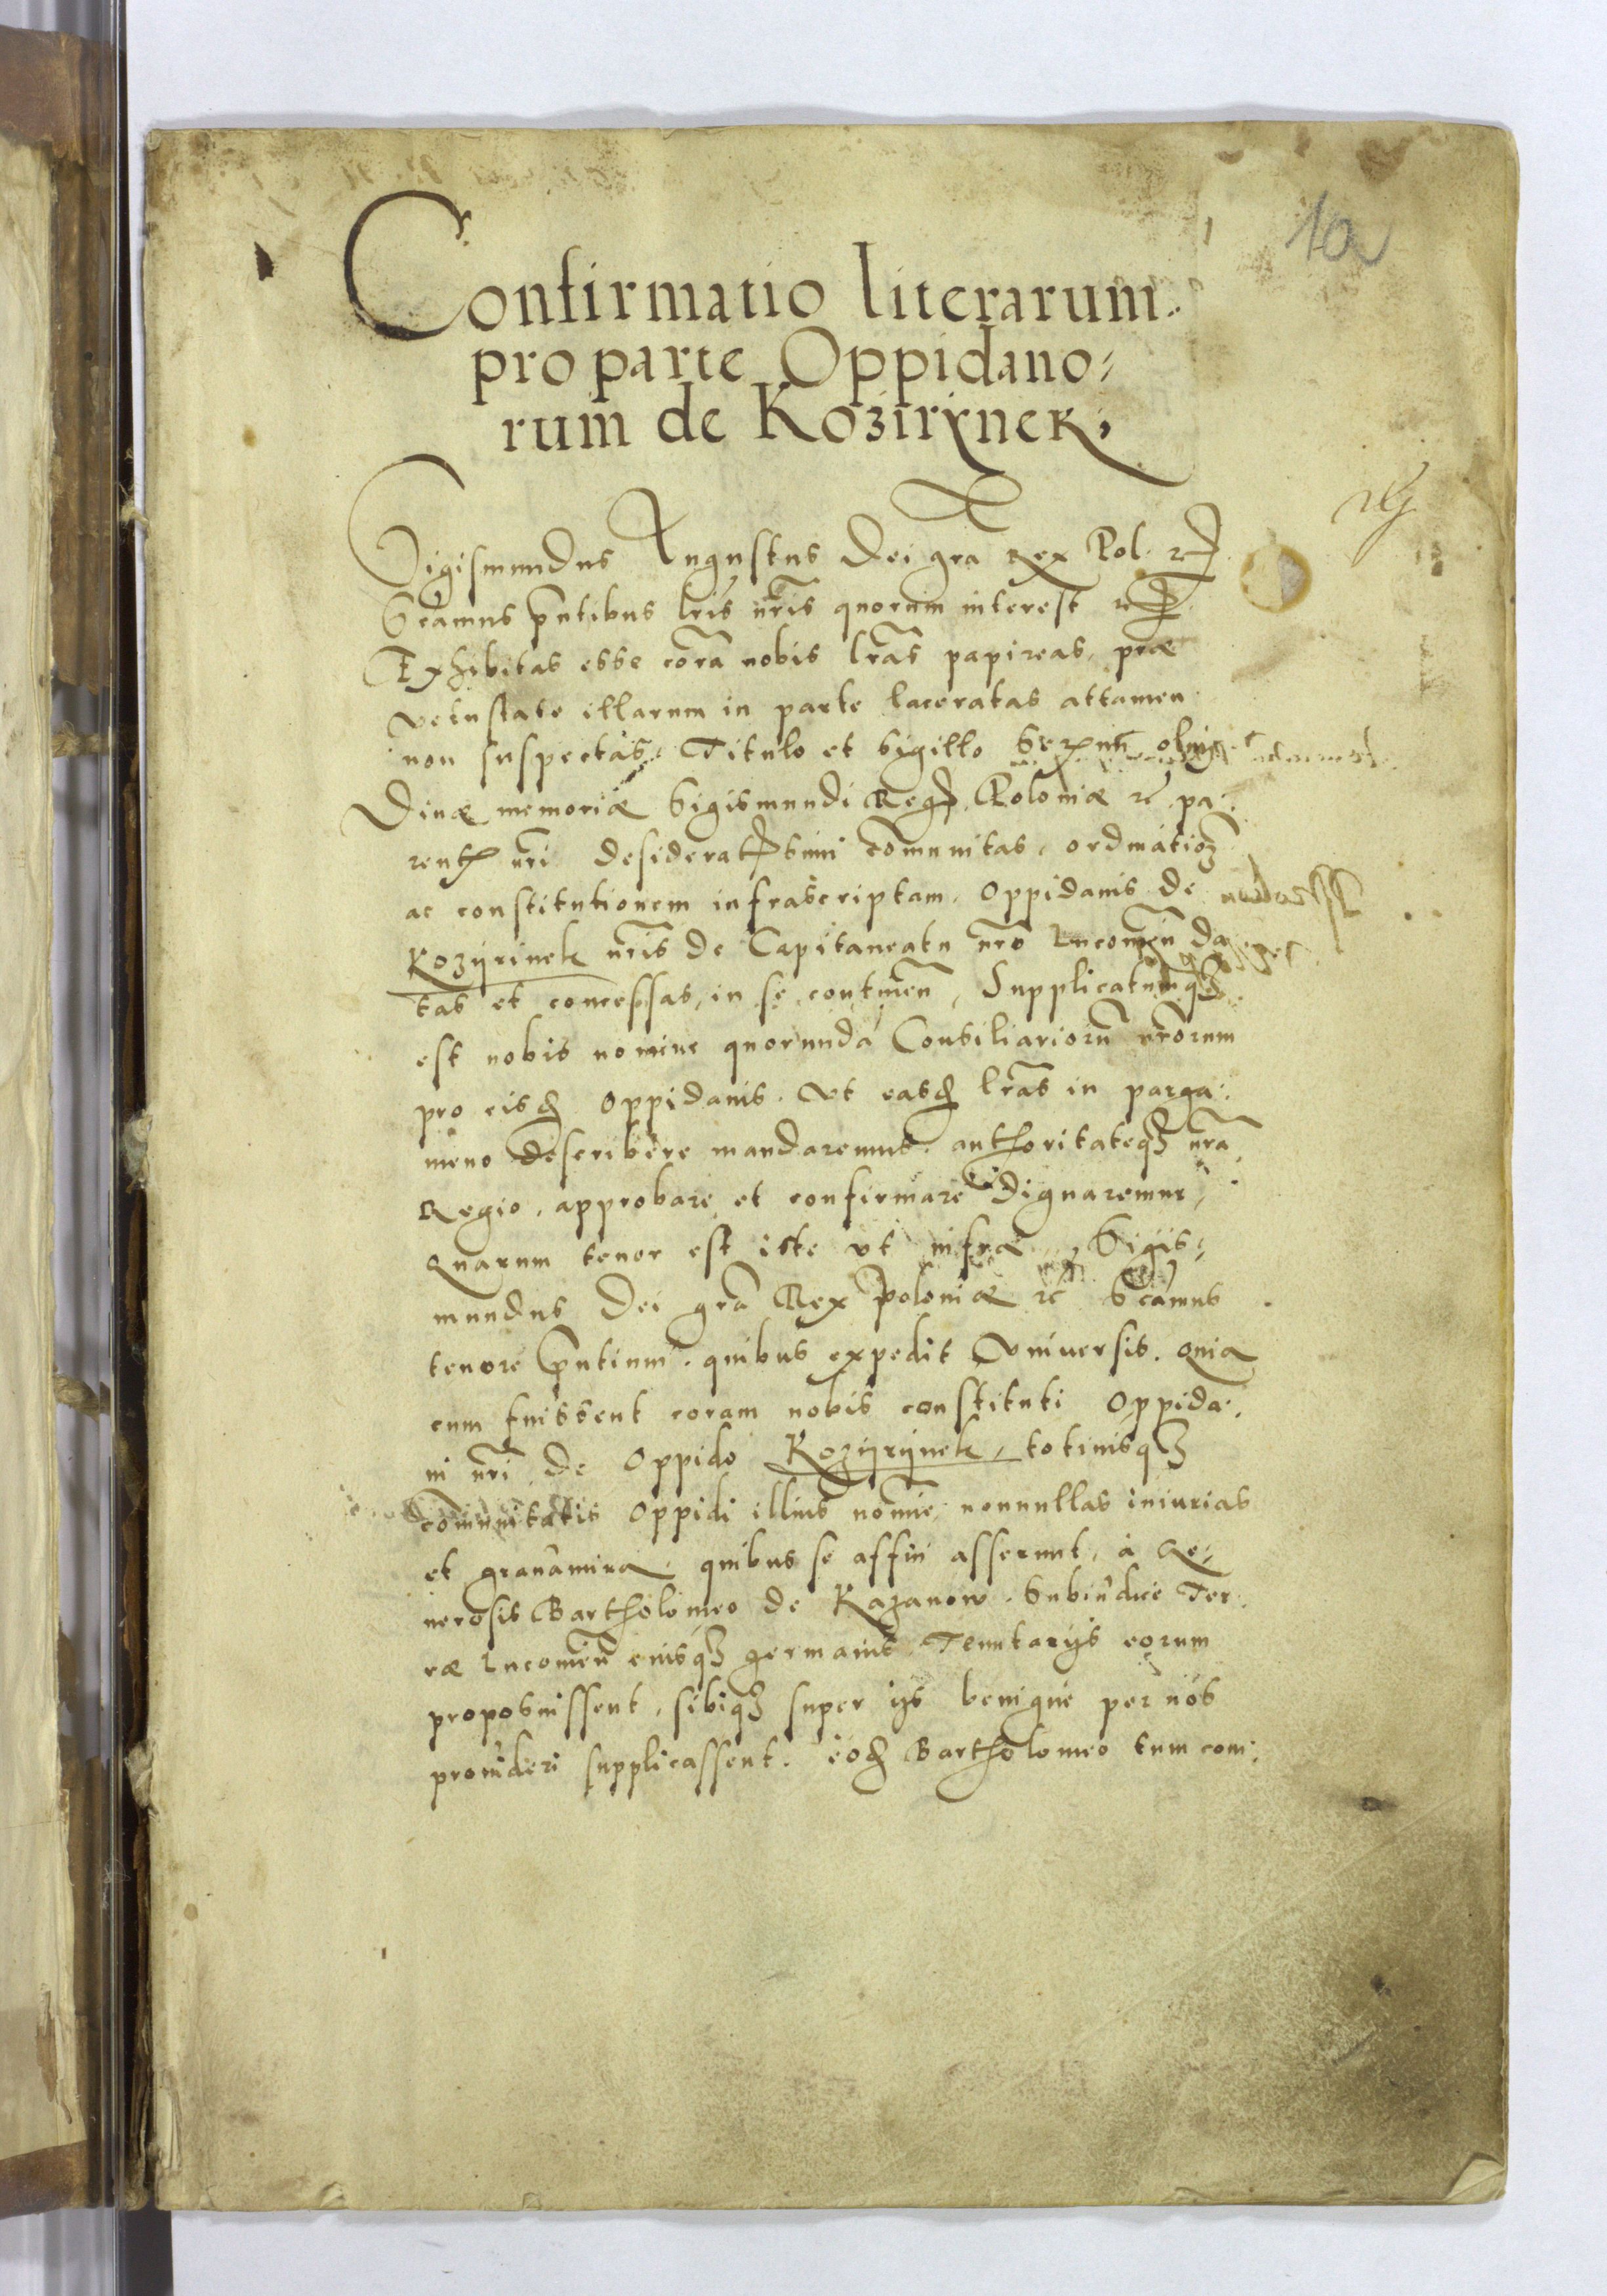 10
Confirmatio literarum
pro parte Oppidano⸗
rum de Kozirÿnek.
Sigismundus Augustus Dei gra Rex Pol. ꝛc
Scamus pntibus lris nris quorum interest ꝛc
Exhibitas esse cora nobis lras papireas, prae
vetustate illarum in parte laceratas attamen
non suspectas. Titulo et sigillo olim
Divae memoriae Sigismundi Reg Poloniae ꝛc pa⸗
rent nri desideratissimi comunitas, ordinatioē
ac constitutionem infrascriptam, Oppidanis de
Kozÿrinek nris de Capitaneatu nro Lucomien da
tas et concessas, in se continen, Supplicatumqꝫ
est nobis nomine quorunda Consiliarioru nrorum
pro eisd Oppidanis. Vt easd lras in parga⸗
meno describere mandaremus, authoritateqꝫ nra
Regio, approbare et confirmare dignaremur,
Quarum tenor est iste vt infra, Sigis⸗
mundus Dei gra Rex Poloniae ꝛc Scamus
tenore pntium. quibus expedit Vniuersis. Quia
cum fuissent coram nobis constituti Oppida⸗
ni nri de Oppido Kozÿrÿnek, totiusqꝫ
comunitatis Oppidi illius nomie, nonnullas iniurias
et grauamina, quibus se affici asserunt, à Ge⸗
nerosis Bartholomeo de Kazanow, Subiudice Ter⸗
rae Lucomien eiusqꝫ germanis Tenutarijs eorum
proposuissent, sibiqꝫ super ijs benigne per nos
prouideri supplicassent. eod Bartholomeo tum com⸗